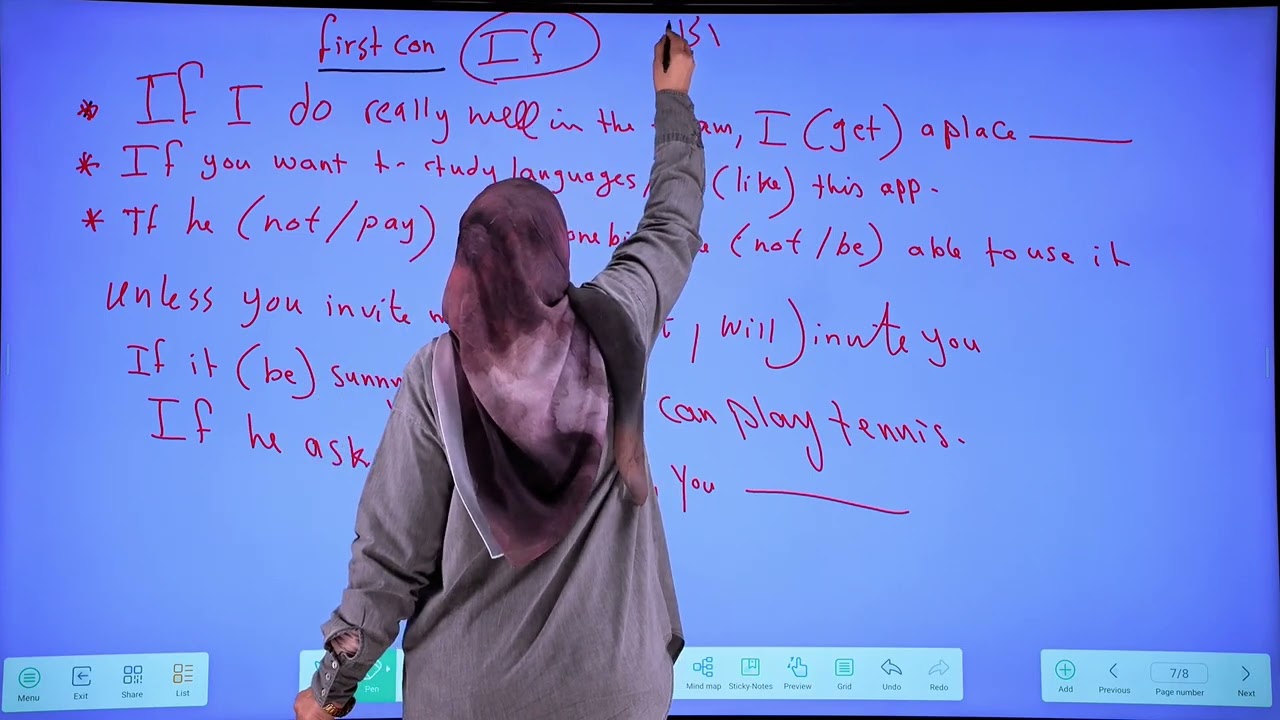 first con If إذا
* If I do really well in the am, I (get) a place ____
* If you want to study languages, (like) this app.
* If he (not/pay) (not/be) able to use it
unless you invite , will) invite you
If it (be) sunny can play tennis.
If he ask , you ____
Menu Exit Share List Pen Mind map Sticky-Notes Preview Grid Undo Redo Add Previous 7/8 Page number Next